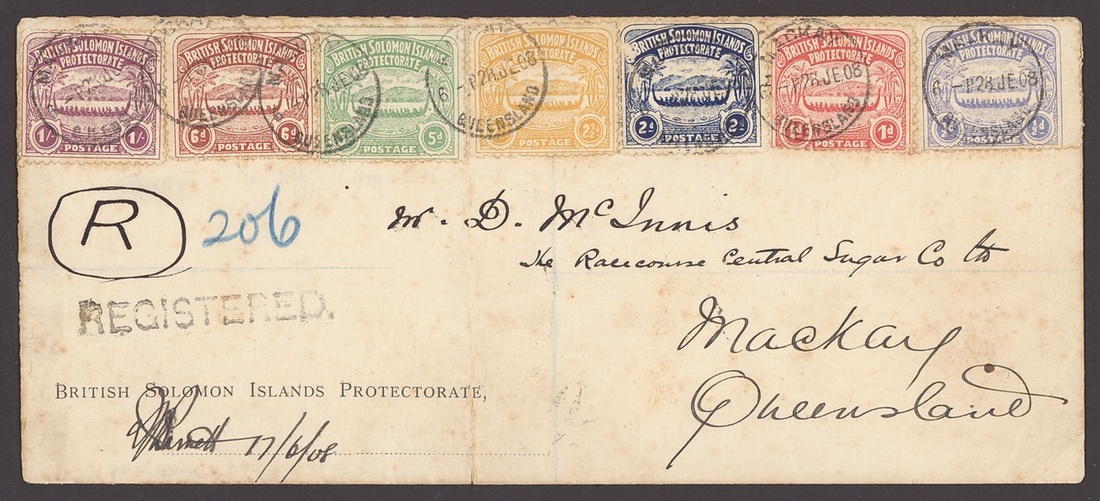 BRITISH SOLOMON ISLANDS PROTECTORATE 1/- 1/- POSTAGE
BRITISH SOLOMON ISLANDS PROTECTORATE 6d 6d POSTAGE
BRITISH SOLOMON ISLANDS PROTECTORATE 5d POSTAGE
BRITISH SOLOMON ISLANDS PROTECTORATE 2½d POSTAGE
BRITISH SOLOMON ISLANDS PROTECTORATE 2d 2d POSTAGE
BRITISH SOLOMON ISLANDS PROTECTORATE 1d POSTAGE
BRITISH SOLOMON ISLANDS PROTECTORATE ½d ½d POSTAGE
6-P 28.JE.08
QUEENSLAND
MACKAY
P 28.JE.08
QUEENSLAND
6-P 28.JE.08
R 206
Mr. D. McInnis
The Racecourse Central Sugar Co Ltd
Mackay
Queensland
REGISTERED.
BRITISH SOLOMON ISLANDS PROTECTORATE,
17/6/08